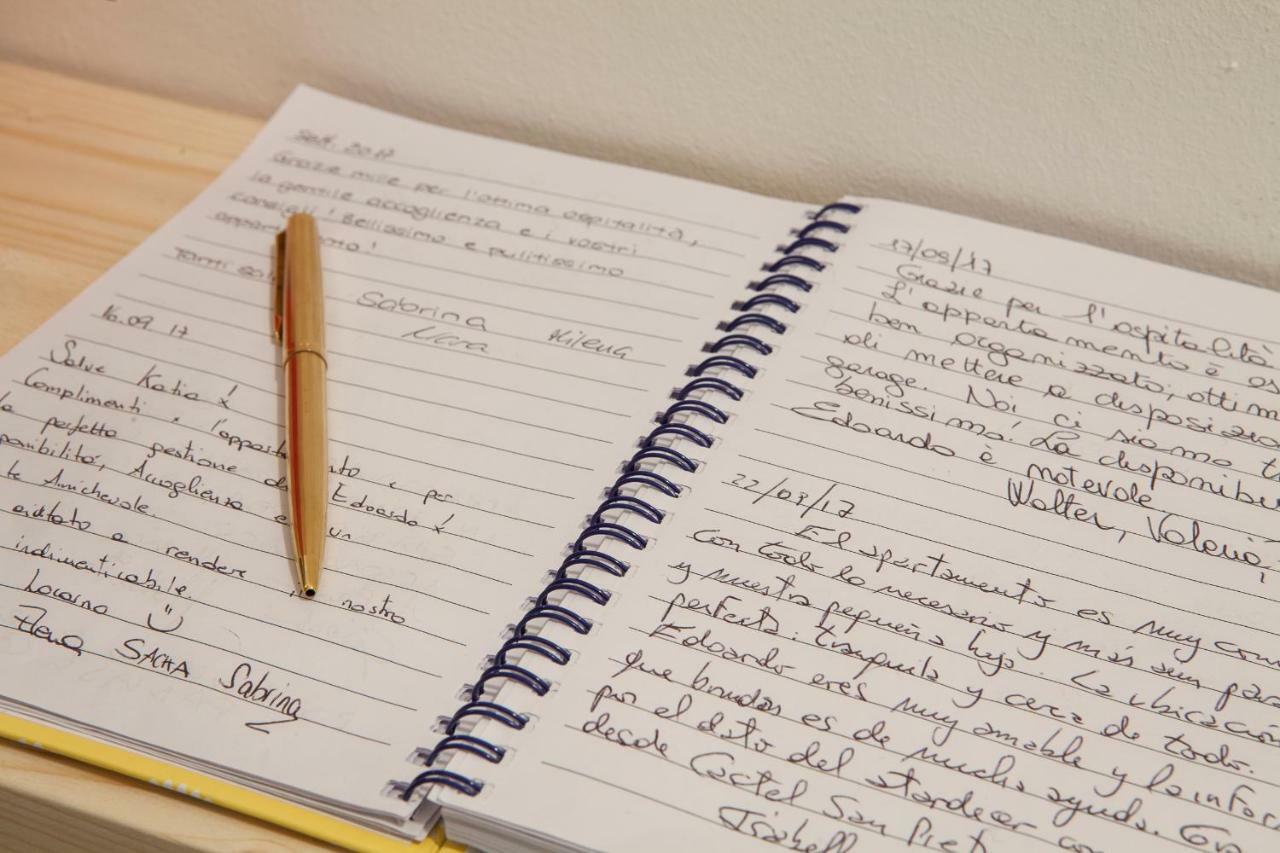 Sett. 2017
Grazie mille per l'ottima ospitalità,
la gentile accoglienza e i vostri
consigli! Bellissimo e pulitissimo
appar to!
Tanti sal
Sabrina
Milena
Mara
16.09 17
Salve Katia!
Complimenti x l'appart nto e per
la perfetta gestione di Edoardo!
ponibilità, Accoglienza e un
te Amichevole
aiutato a rendere nostro
indimenticabile
Locarno
Elena SACHA Sabrina
17/08/17
Grazie per l'ospitalità
L'appartamento è os
ben organizzato, ottim
di mettere a disposizio
garage. Noi ci siamo t
benissimo! La disponibi
Edoardo è notevole
Walter, Valeria,
22/08/17
El apartamento es muy com
Con todo lo necesario y más aun para
y nuestra pequeña hija. La ubicación
perfecta. tranquila y cerca de todo.
Edoardo eres muy amable y la infor
que brindas es de mucha ayuda. Gra
por el dato del atardecer
desde Castel San Piet